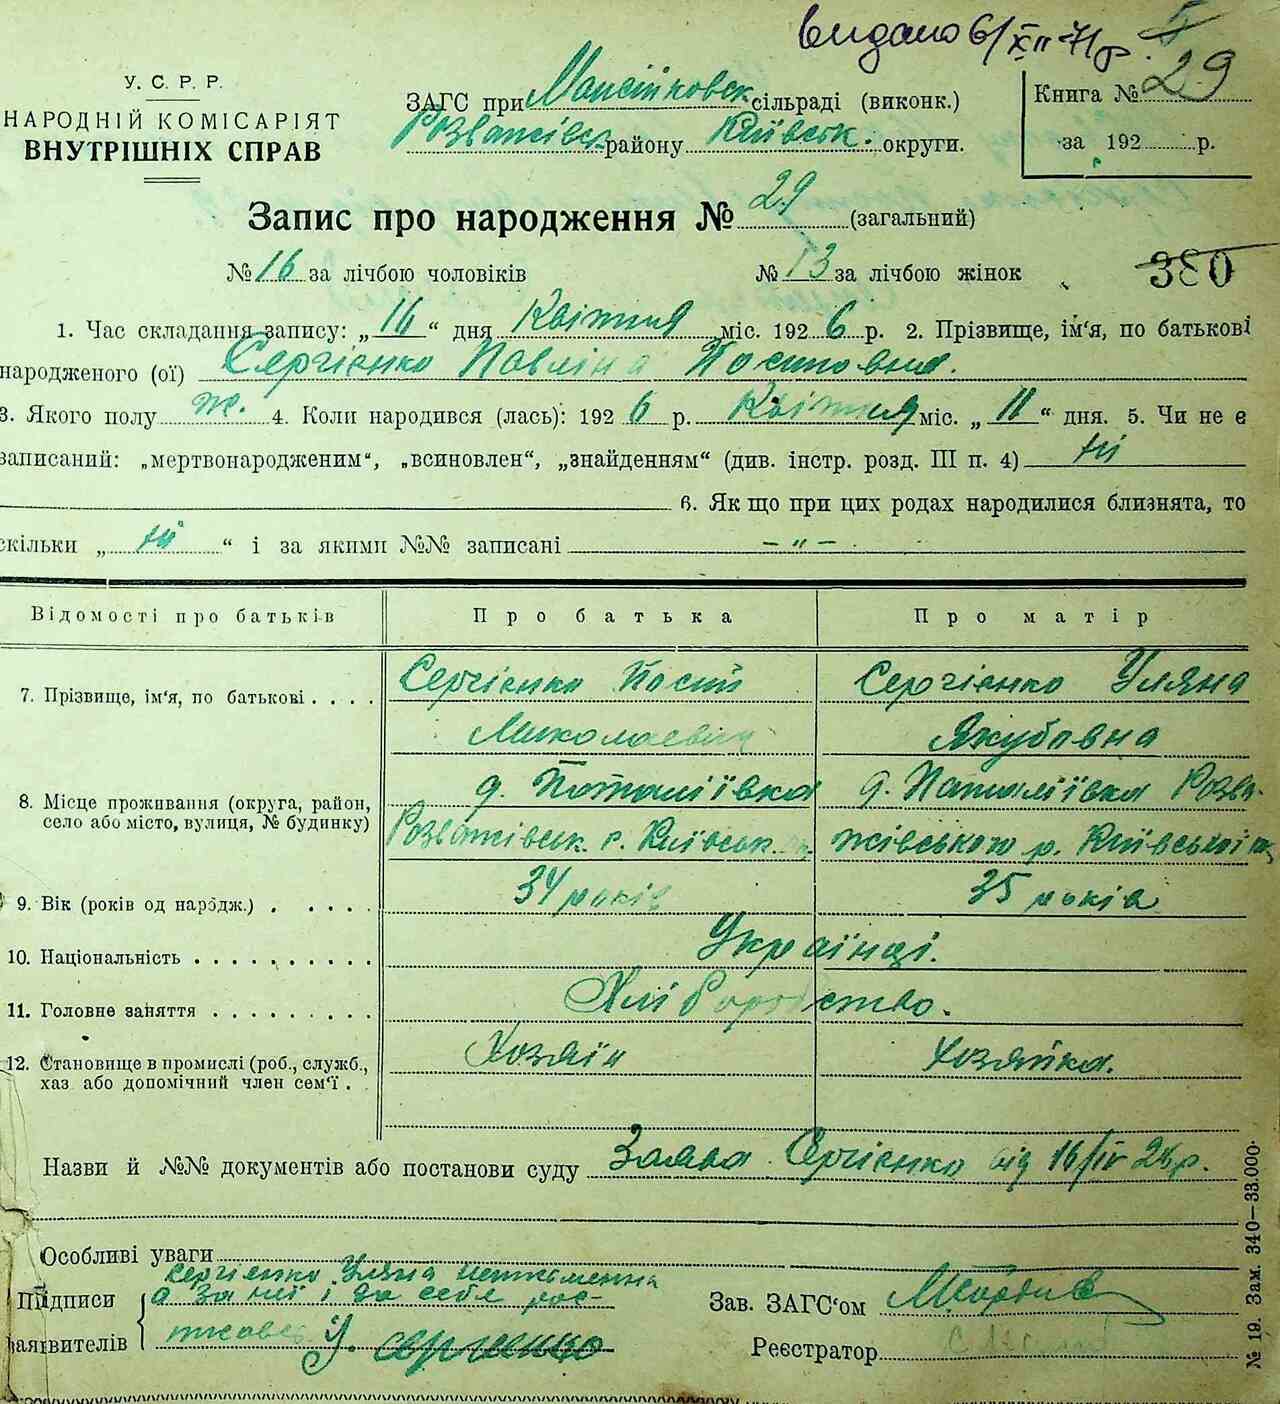 видано 6/XII 71 р.
У. С. Р. Р.
НАРОДНІЙ КОМІСАРІЯТ
ВНУТРІШНІХ СПРАВ
ЗАГС при сільраді (виконк.)
району Київськ. округи.
Книга № 29
за 192 р.
Запис про народження № 29 (загальний)
№ 16 за лічбою чоловіків № 13 за лічбою жінок
380
1. Час складання запису: „ 16 “ дня Квітня міс. 192 6 р. 2. Прізвище, ім'я, по батькові
народженого (ої) Сергієнко Павліна Йосиповна.
3. Якого полу ж. 4. Коли народився (лась): 192 6 р. Квітня міс. „ 11 “ дня. 5. Чи не є
записаний: „мертвонародженим“, „всиновлен“, „знайденням“ (див. інстр. розд. III п. 4) ні
6. Як що при цих родах народилися близнята, то
скільки „ ні “ і за якими №№ записані – „ –
Відомості про батьків Про батька Про матір
7. Прізвище, ім'я, по батькові . . . . Сергієнко Йосип Сергієнко Уляна
Миколаевич Якубовна
8. Місце проживання (округа, район, д. Поталіївка д. Паталіївка Розва-
село або місто, вулиця, № будинку) Розважівськ. р. Київськ. жівського р. Київської
9. Вік (років од народж.) . . . . . 34 років 35 років
10. Національність . . . . . . . . . . Українці.
11. Головне заняття . . . . . . . . . Хліборобство.
12. Становище в промислі (роб., служб., Хозяїн Хозяйка.
хаз або допомічний член сем'ї .
Назви й №№ документів або постанови суду Заява Сергієнко від 16/IV 26 р.
Особливі уваги
Підписи Сергієнко Уляна неписьменна
а за неї і за себе рос-
заявителів У. Сергиенко
Зав. ЗАГС'ом
Реєстратор
№ 19. Зам. 340—33.000.